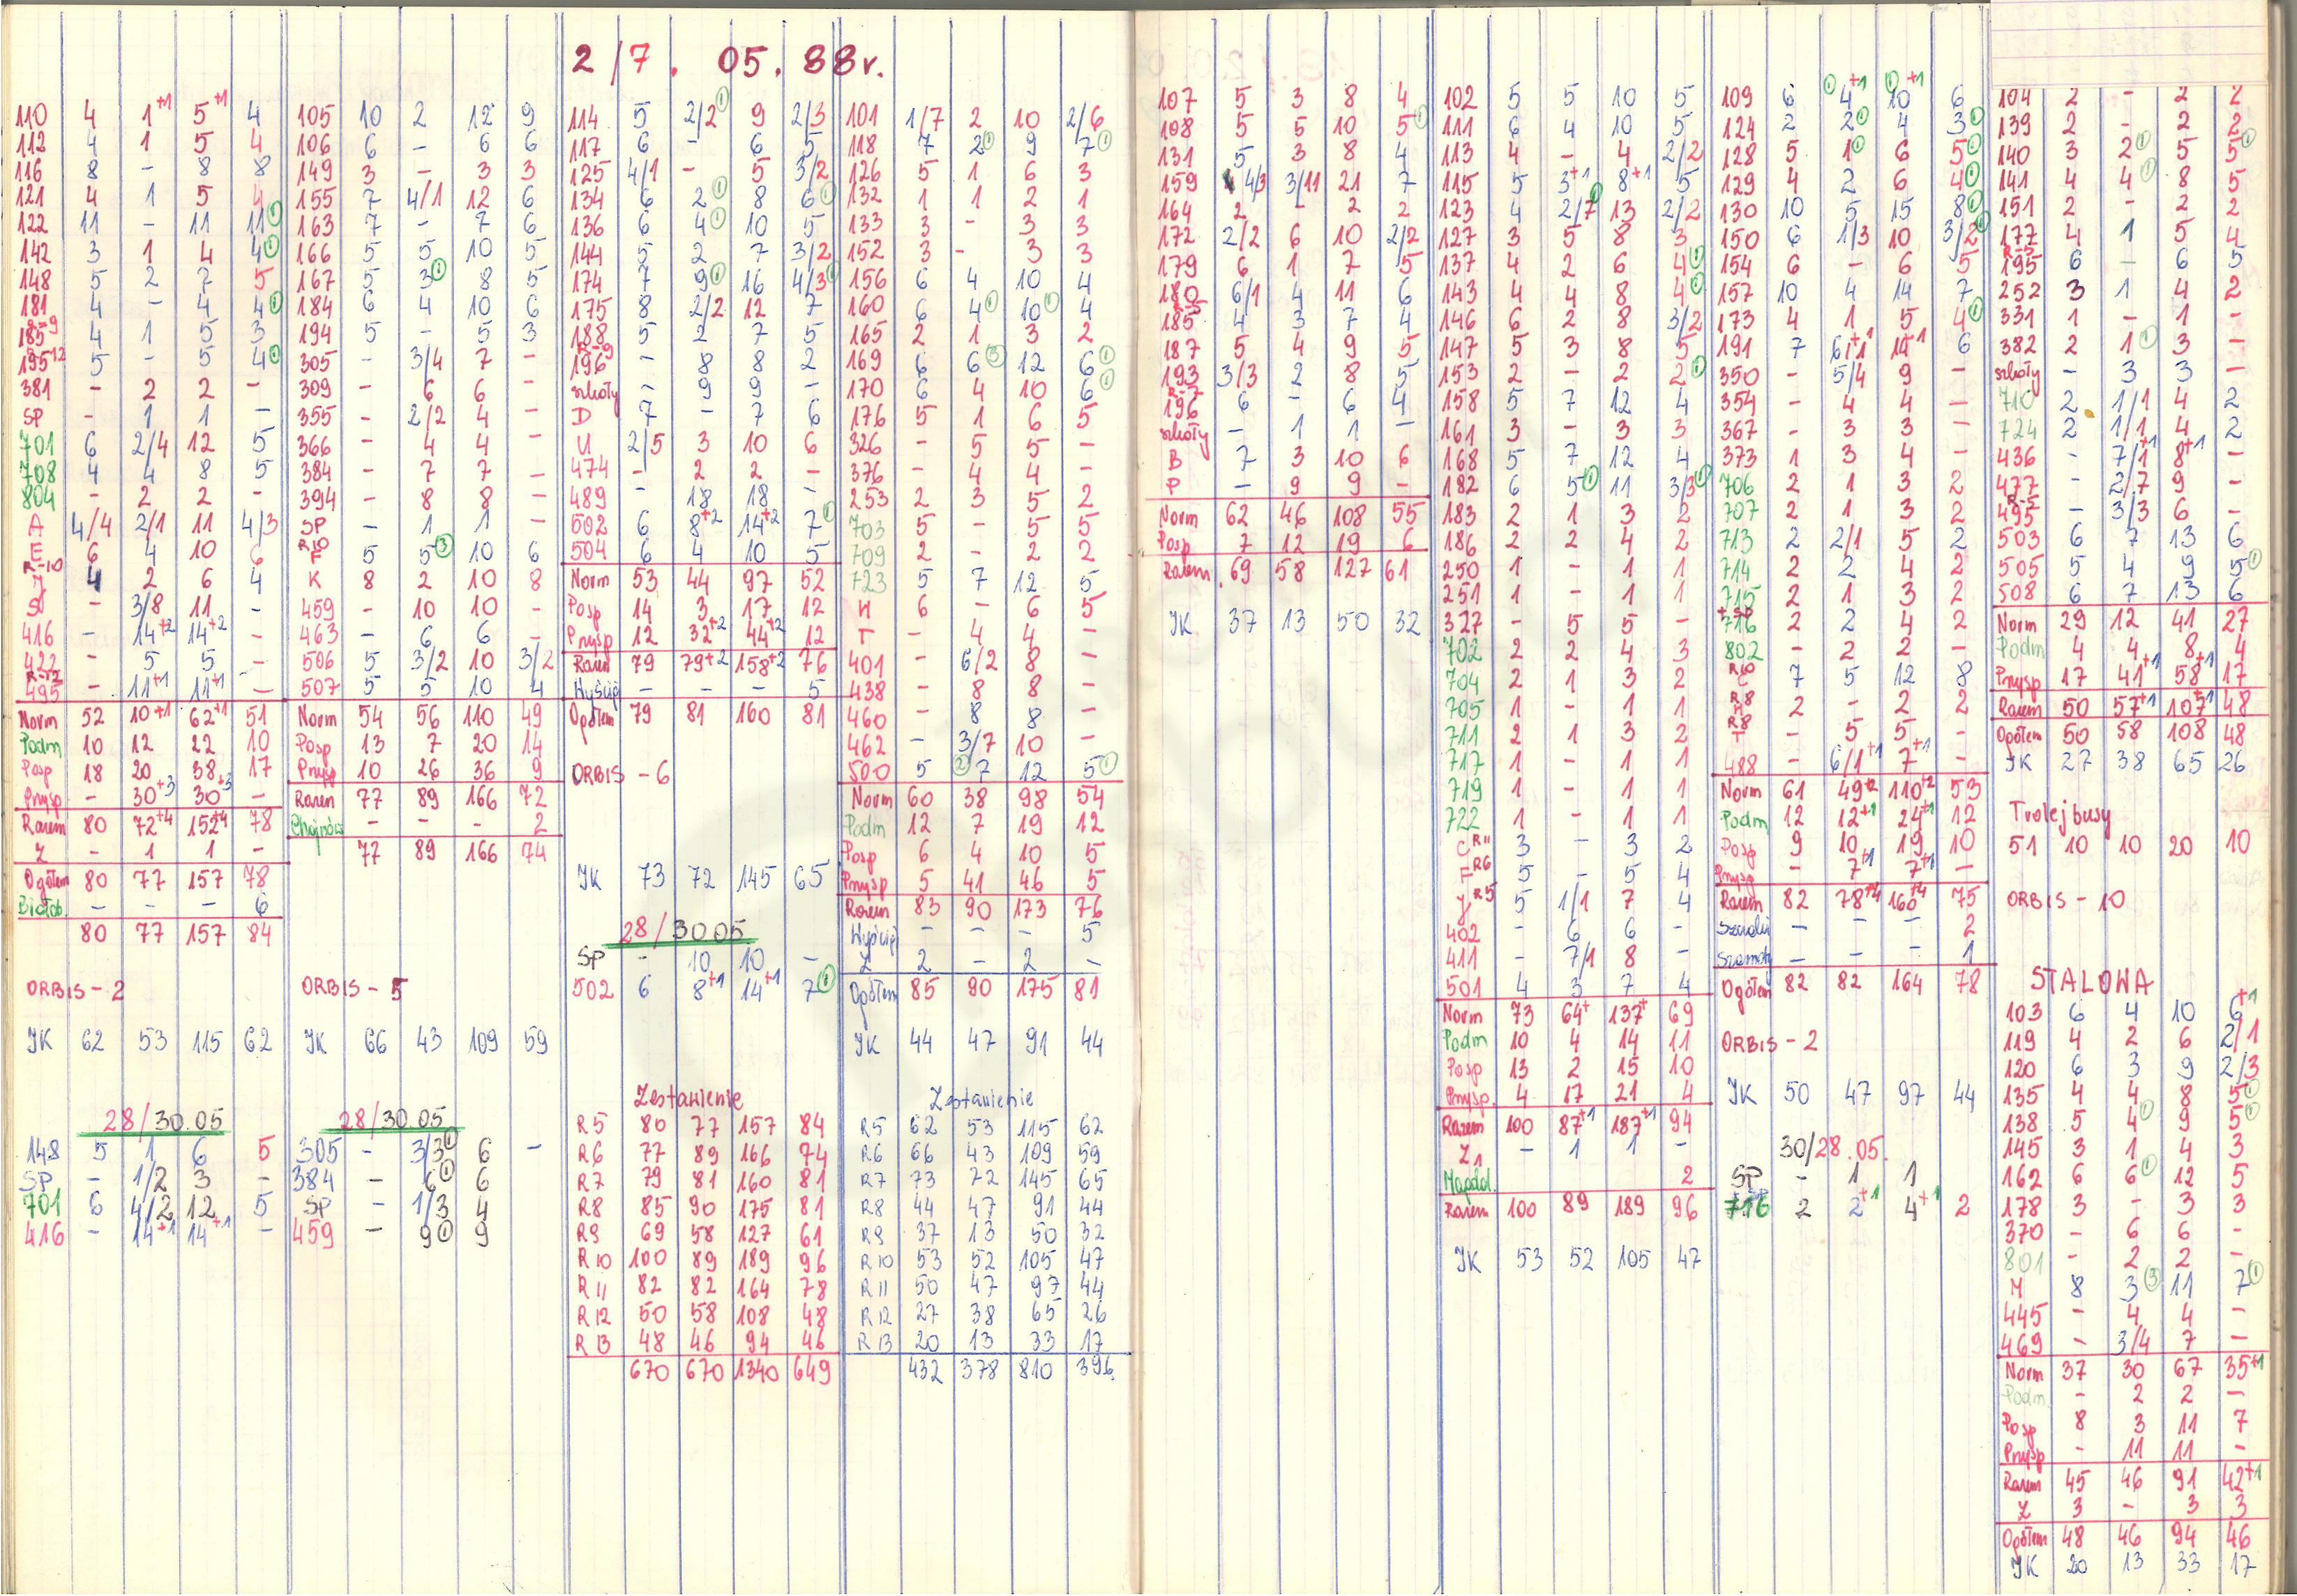 2/7. 05. 88r.
110 4 1+1 5+1 4
112 4 1 5 4
116 8 - 8 8
121 4 1 5 4
122 11 - 11 11①
142 3 1 4 4①
148 5 2 7 5
181 4 - 4 4①
185 R-9 4 1 5 3
195 R-12 5 - 5 4①
381 - 2 2 -
SP - 1 1 -
701 6 2/4 12 5
708 4 4 8 5
804 - 2 2 -
A 4/4 2/1 11 4/3
E 6 4 10 6
J R-10 4 2 6 4
- 3/8 11 -
416 - 14+2 14+2 -
422 - 5 5 -
495 R-12 - 11+1 11+1 -
Norm 52 10+1 62+1 51
Podm 10 12 22 10
Posp 18 20 38 17
Pnysp - 30+3 30+3 -
Razem 80 72+4 152+4 78
Z - 1 1 -
Ogółem 80 77 157 78
Białob. - - - 6
80 77 157 84
ORBIS - 2
JK 62 53 115 62
28/30.05
148 5 1 6 5
SP - 1/2 3 -
701 6 4/2 12 5
416 - 14+1 14+1 -
105 10 2 12 9
106 6 - 6 6
149 3 - 3 3
155 7 4/1 12 6
163 7 - 7 6
166 5 5 10 5
167 5 3① 8 5
184 6 4 10 6
194 5 - 5 3
305 - 3/4 7 -
309 - 6 6 -
355 - 2/2 4 -
366 - 4 4 -
384 - 7 7 -
394 - 8 8 -
SP - 1 1 -
F R10 5 5③ 10 6
K 8 2 10 8
459 - 10 10 -
463 - 6 6 -
506 5 3/2 10 3/2
507 5 5 10 4
Norm 54 56 110 49
Posp 13 7 20 14
Pnysp 10 26 36 9
Razem 77 89 166 72
Chojnów - - - 2
77 89 166 74
ORBIS - 5
JK 66 43 109 59
28/30.05
305 - 3/3① 6 -
384 - 6① 6
SP - 1/3 4
459 - 9① 9
114 5 2/2① 9 2/3
117 6 - 6 5
125 4/1 - 5 3/2
134 6 2① 8 6①
136 6 4① 10 5
144 5 2 7 3/2
174 7 9① 16 4/3①
175 8 2/2 12 7
188 5 2 7 5
196 R-9 - 8 8 2
szkoły - 9 9 -
D 7 - 7 6
U 2/5 3 10 6
474 - 2 2 -
489 - 18 18 -
502 6 8+2 14+2 7①
504 6 4 10 5
Norm 53 44 97 52
Posp 14 3 17 12
Pnysp 12 32+2 44+2 12
Razem 79 79+2 158+2 76
Wyścig - - - 5
Ogółem 79 81 160 81
ORBIS - 6
JK 73 72 145 65
28/30.05
SP - 10 10 -
502 6 8+1 14+1 7①
Zestawienie
R5 80 77 157 84
R6 77 89 166 74
R7 79 81 160 81
R8 85 90 175 81
R9 69 58 127 61
R10 100 89 189 96
R11 82 82 164 78
R12 50 58 108 48
R13 48 46 94 46
670 670 1340 649
101 1/7 2 10 2/6
118 7 2① 9 7①
126 5 1 6 3
132 1 1 2 1
133 3 - 3 3
152 3 - 3 3
156 6 4 10 4
160 6 4① 10① 4
165 2 1 3 2
169 6 6③ 12 6①
170 6 4 10 6①
176 5 1 6 5
326 - 5 5 -
376 - 4 4 -
253 2 3 5 2
703 5 - 5 5
709 2 - 2 2
723 5 7 12 5
H 6 - 6 5
T - 4 4 -
401 - 6/2 8 -
438 - 8 8 -
460 - 8 8 -
462 - 3/7 10 -
500 5 ②7 12 5①
Norm 60 38 98 54
Podm 12 7 19 12
Posp 6 4 10 5
Pnysp 5 41 46 5
Razem 83 90 173 76
Wyścig - - - 5
Z 2 - 2 -
Ogółem 85 90 175 81
JK 44 47 91 44
Zestawienie
R5 62 53 115 62
R6 66 43 109 59
R7 73 72 145 65
R8 44 47 91 44
R9 37 13 50 32
R10 53 52 105 47
R11 50 47 97 44
R12 27 38 65 26
R13 20 13 33 17
432 378 810 396
107 5 3 8 4
108 5 5 10 5①
131 5 3 8 4
159 4/3 3/11 21 7
164 2 - 2 2
172 2/2 6 10 2/2
179 6 1 7 5
180 6/1 4 11 6
185 R-5 4 3 7 4
187 5 4 9 5
193 3/3 2 8 5
196 R-7 6 - 6 4
szkoły - 1 1 -
B 7 3 10 6
P - 9 9 -
Norm 62 46 108 55
Posp 7 12 19 6
Razem 69 58 127 61
JK 37 13 50 32
102 5 5 10 5
111 6 4 10 5
113 4 - 4 2/2
115 5 3+1 8+1 5
123 4 2/7① 13 2/2
127 3 5 8 3
137 4 2 6 4①
143 4 4 8 4①
146 6 2 8 3/2
147 5 3 8 5
153 2 - 2 2①
158 5 7 12 4
161 3 - 3 3
168 5 7 12 4
182 6 5① 11 3/3①
183 2 1 3 2
186 2 2 4 2
250 1 - 1 1
251 1 - 1 1
327 - 5 5 -
702 2 2 4 3
704 2 1 3 2
705 1 - 1 1
711 2 1 3 2
717 1 - 1 1
719 1 - 1 1
722 1 - 1 1
C R11 3 - 3 2
F R6 5 - 5 4
J R5 5 1/1 7 4
402 - 6 6 -
411 - 7/1 8 -
501 4 3 7 4
Norm 73 64+ 137+ 69
Podm 10 4 14 11
Posp 13 2 15 10
Pnysp. 4 17 21 4
Razem 100 87+1 187+1 94
Z1 - 1 1 -
Magdal. 2
Razem 100 89 189 96
JK 53 52 105 47
109 6 ①4+1 ①10+1 6
124 2 2① 4 3①
128 5 1① 6 5①
129 4 2 6 4①
130 10 5 15 8①
150 6 1/3 10 3/2①
154 6 - 6 5
157 10 4 14 7
173 4 1 5 4①
191 7 6/1+1 14+1 6
350 - 5/4 9 -
354 - 4 4 -
367 - 3 3 -
373 1 3 4 -
706 2 1 3 2
707 2 1 3 2
713 2 2/1 5 2
714 2 2 4 2
715 2 1 3 2
716 +SP 2 2 4 2
802 - 2 2 -
C R10 7 5 12 8
R8 2 - 2 2
T R8 - 5 5 -
488 - 6/1+1 7+1 -
Norm 61 49+2 110+2 53
Podm 12 12+1 24+1 12
Posp 9 10 19 10
Pnysp - 7+1 7+1 -
Razem 82 78+4 160+4 75
- - - 2
- - - 1
Ogółem 82 82 164 78
ORBIS - 2
JK 50 47 97 44
30/28.05.
SP - 1 1
716 2 2+1 4+1 2
104 2 - 2 2
139 2 - 2 2
140 3 2① 5 5①
141 4 4① 8 5
151 2 - 2 2
177 4 1 5 4
195 R-5 6 - 6 5
252 3 1 4 2
331 1 - 1 -
382 2 1① 3 -
szkoły - 3 3 -
710 2 1/1 4 2
724 2 1/1 4 2
436 - 7/1+1 8+1 -
477 - 2/7 9 -
495 R-5 - 3/3 6 -
503 6 7 13 6
505 5 4 9 5①
508 6 7 13 6
Norm 29 12 41 27
Podm 4 4 8 4
Pnysp 17 41+1 58+1 17
Razem 50 57+1 107+1 48
Ogółem 50 58 108 48
JK 27 38 65 26
Trolejbusy
51 10 10 20 10
ORBIS - 10
STALOWA
103 6 4 10 6+1
119 4 2 6 2/1
120 6 3 9 2/3
135 4 4 8 5①
138 5 4① 9 5①
145 3 1 4 3
162 6 6① 12 5
178 3 - 3 3
370 - 6 6 -
801 - 2 2 -
M 8 3③ 11 7①
445 - 4 4 -
469 - 3/4 7 -
Norm 37 30 67 35+1
Podm. - 2 2 -
Posp 8 3 11 7
Pnysp - 11 11 -
Razem 45 46 91 42+1
Z 3 - 3 3
Ogółem 48 46 94 46
JK 20 13 33 17